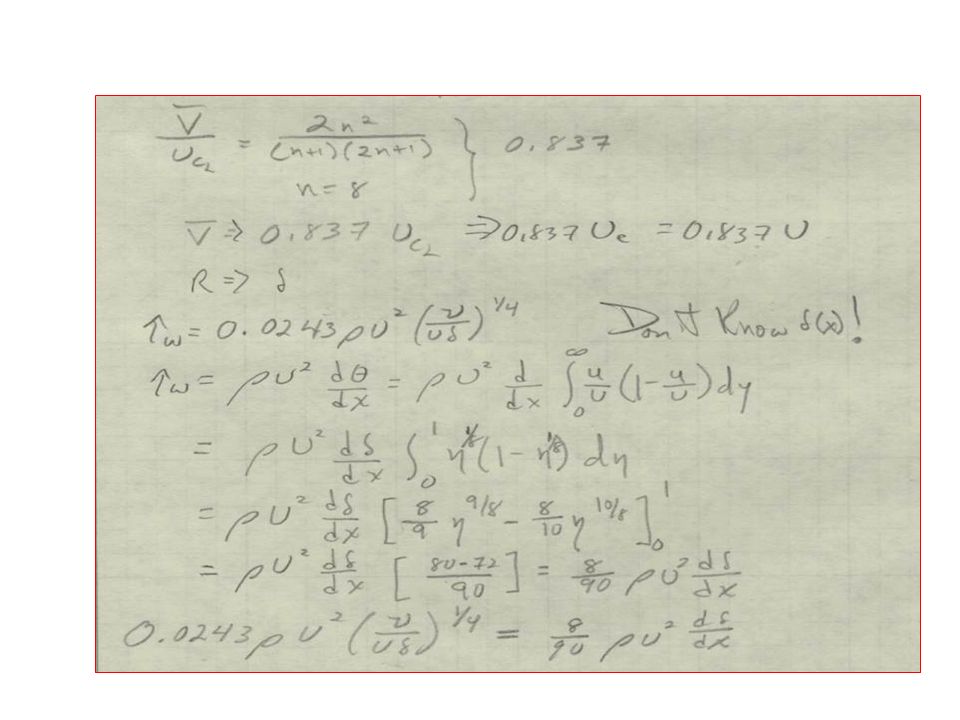 V̅/U_CL = 2n²/((n+1)(2n+1)) } 0.837
n=8
V̅ ⇒ 0.837 U_CL ⇒ 0.837 U_e = 0.837 U
R ⇒ δ
τ_w = 0.0243 ρU² (ν/Uδ)^1/4 Don't Know δ(x)!
τ_w = ρU² dθ/dx = ρU² d/dx ∫₀^∞ u/U (1-u/U) dy
= ρU² dδ/dx ∫₀¹ η^1/8 (1-η^1/8) dη
= ρU² dδ/dx [8/9 η^9/8 - 8/10 η^10/8]₀¹
= ρU² dδ/dx [80-72/90] = 8/90 ρU² dδ/dx
0.0243 ρU² (ν/Uδ)^1/4 = 8/90 ρU² dδ/dx